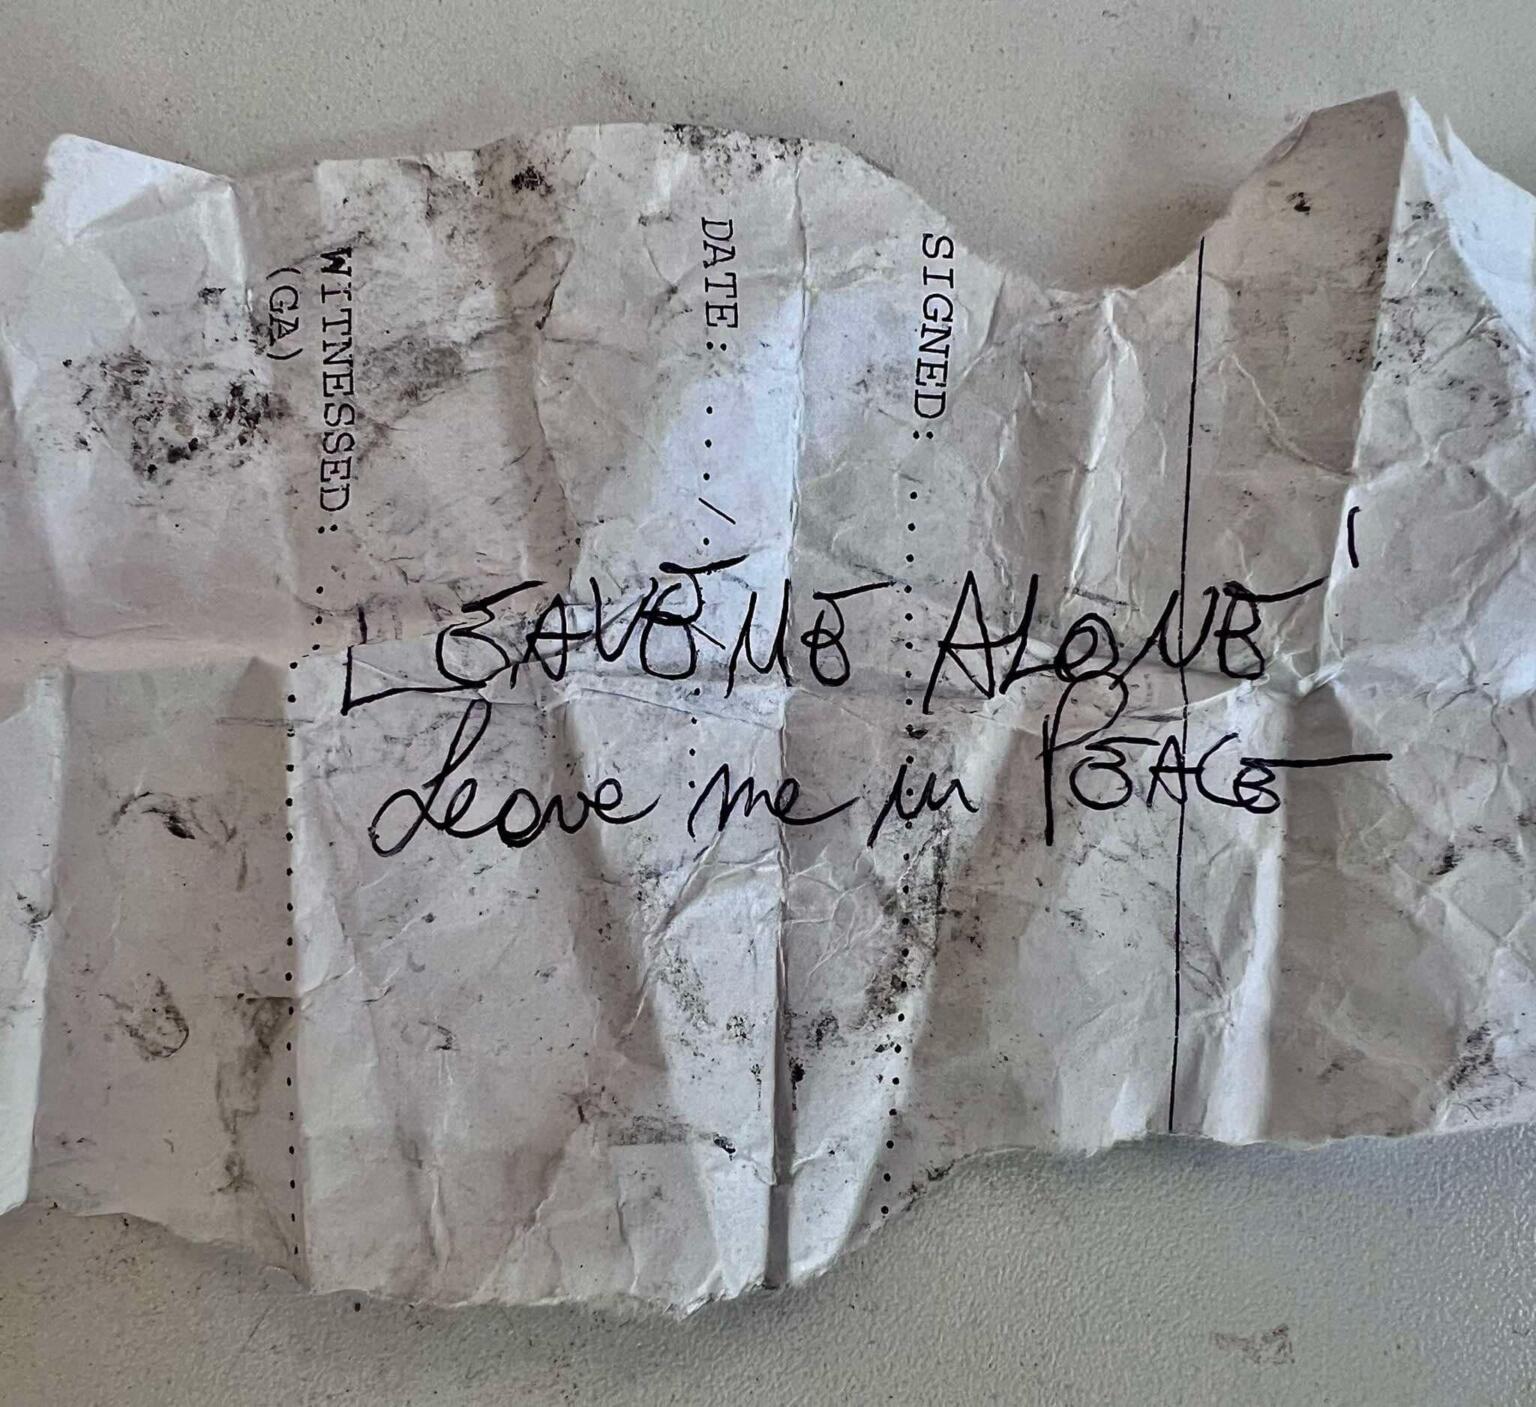 LEAVE ME ALONE
Leave me in PEACE
SIGNED: ...
DATE: .../.
WITNESSED:
(GA)